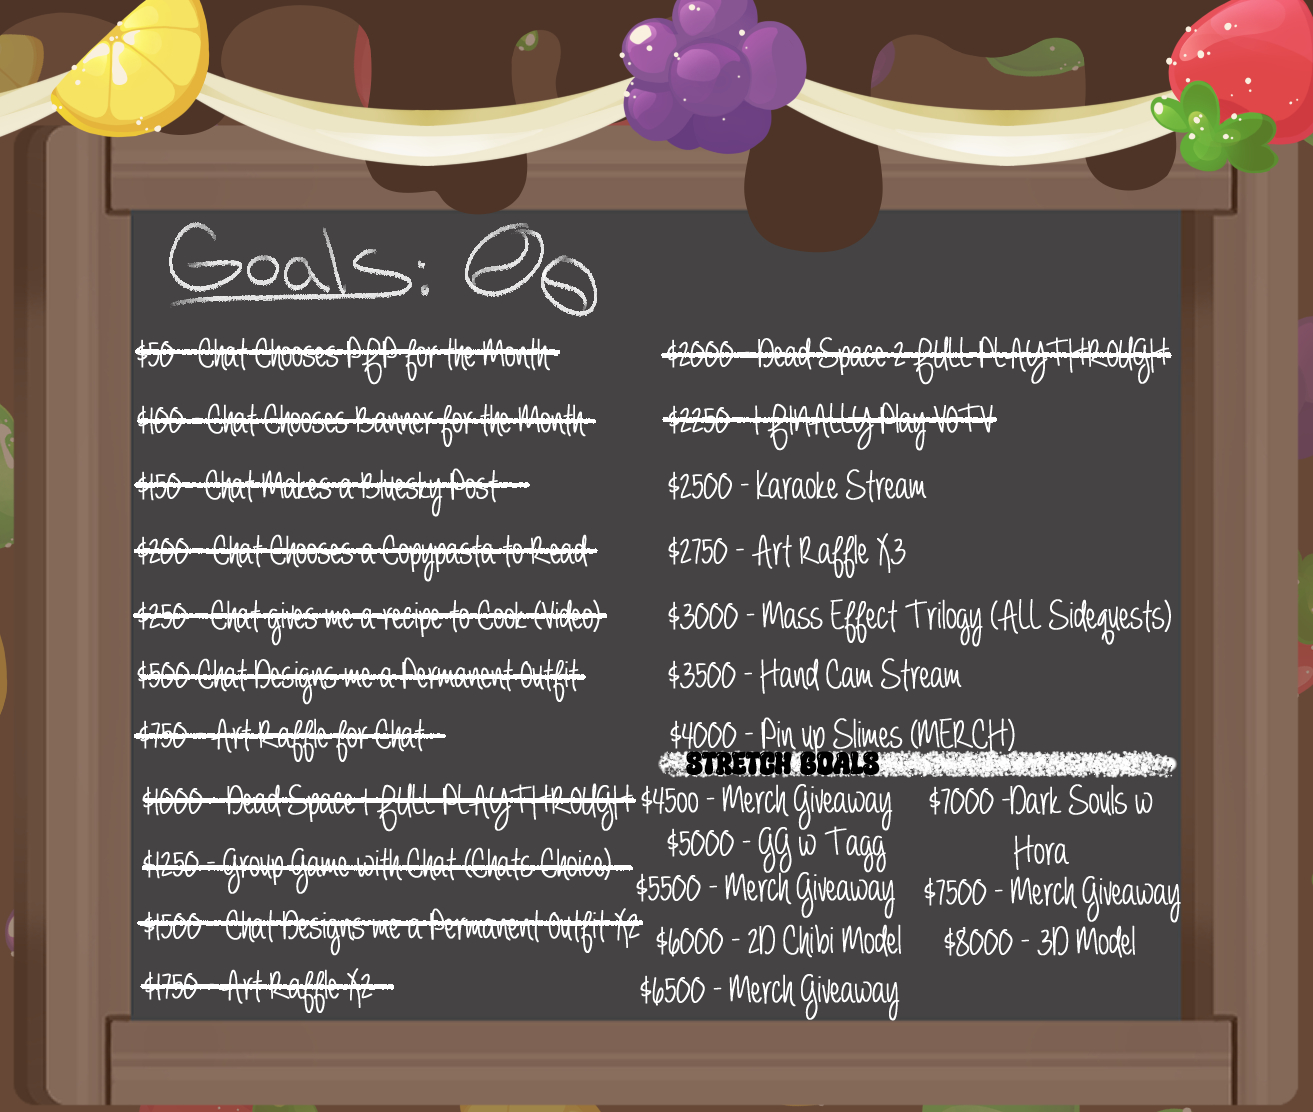 Goals:
$50 - Chat Chooses PFP for the Month
$100 - Chat Chooses Banner for the Month
$150 - Chat Makes a Bluesky Post
$200 - Chat Chooses a Copypasta to Read
$250 - Chat gives me a recipe to Cook (Video)
$500 Chat Designs me a Permanent Outfit
$750 - Art Raffle for Chat
$1000 - Dead Space 1 FULL PLAYTHROUGH
$1250 - Group Game with Chat (Chats Choice)
$1500 - Chat Designs me a Permanent Outfit X2
$1750 - Art Raffle X2
$2000 - Dead Space 2 FULL PLAYTHROUGH
$2250 - I FINALLY Play VOTV
$2500 - Karaoke Stream
$2750 - Art Raffle X3
$3000 - Mass Effect Trilogy (ALL Sidequests)
$3500 - Hand Cam Stream
$4000 - Pin up Slimes (MERCH)
STRETCH GOALS
$4500 - Merch Giveaway
$5000 - GG w Tagg
$5500 - Merch Giveaway
$6000 - 2D Chibi Model
$6500 - Merch Giveaway
$7000 -Dark Souls w
Hora
$7500 - Merch Giveaway
$8000 - 3D Model